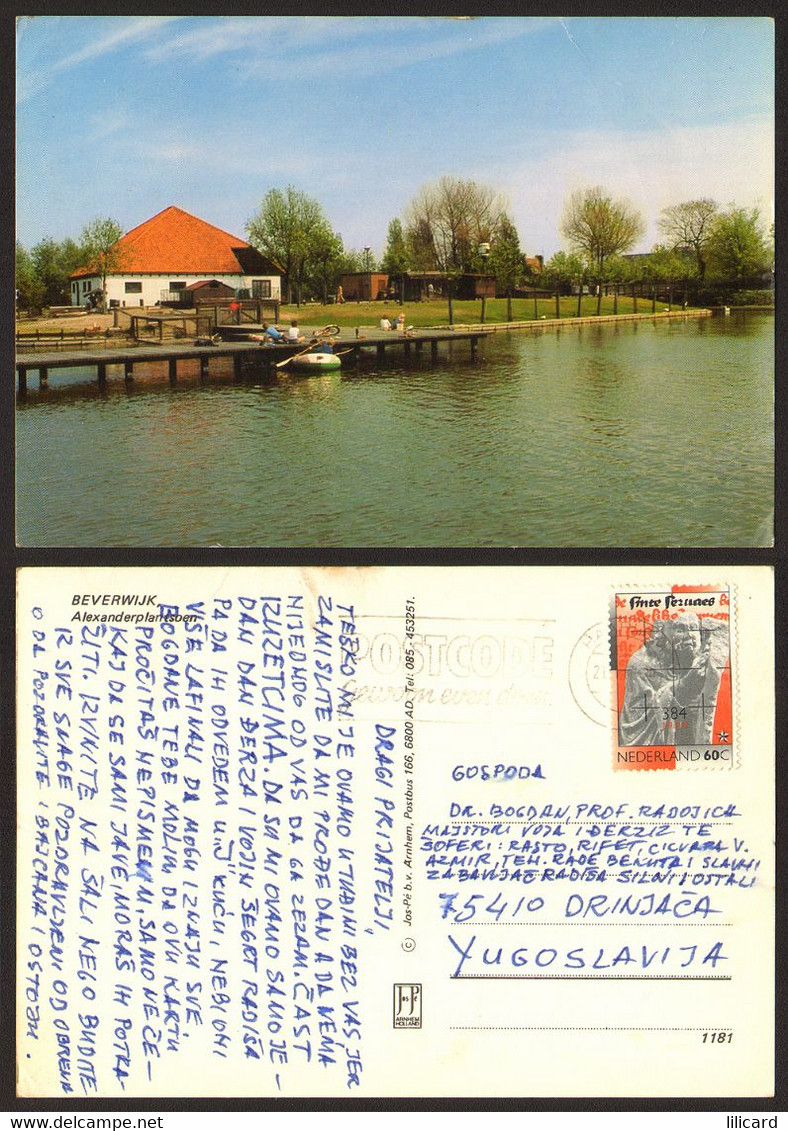 BEVERWIJK,
Alexanderplantsoen
DRAGI PRIJATELJI,
TEŠKO MI JE OVAMO U TUĐINI BEZ VAS, JER
ZAMISLITE DA MI PROĐE DAN A DA NEMA
NIJEDNOG OD VAS DA GA ZEZAM. ČAST
IZUZETCIMA. DA SU MI OVAMO SAMO JE-
DAN DAN ĐERZA I VOJIN ŠEGRT RADIŠA
PA DA IH ODVEDEM U "J" KUĆU, NE BI ONI
VIŠE LAFINALI DA MOGU I ZNAJU SVE.
BOGDANE TEBE MOLIM DA OVU KARTU
PROČITAŠ NEPISMENIM, SAMO NEČE-
KAJ DA SE SAMI JAVE, MORAŠ IH POTKA-
ŽITI. IZVINITE NA ŠALI NEGO BUDITE
IZ SVE SNAGE POZDRAVLJENI OD OBRENA
O DA POZDRAVITE I BAJČANA I OSTOJU.
© Jos-Pé b.v. Arnhem, Postbus 166, 6800 AD, Tel: 085 - 453251.
POSTCODE
gewoon even doen.
Sinte Servaes
384
NEDERLAND 60C
GOSPODA
DR. BOGDAN, PROF. RADOJICA
MAJSTORI VOJA I ĐERZIZ TE
ŠOFERI: RASTO, RIFET, CICVARA V.
AZMIR, TEH. RADE BENUTA I SLAVNI
ZABAVLJAČ RADIŠA SILNI I OSTALI
75410 DRINJAČA
YUGOSLAVIJA
Jos Pé
ARNHEM
HOLLAND
1181
lilicard